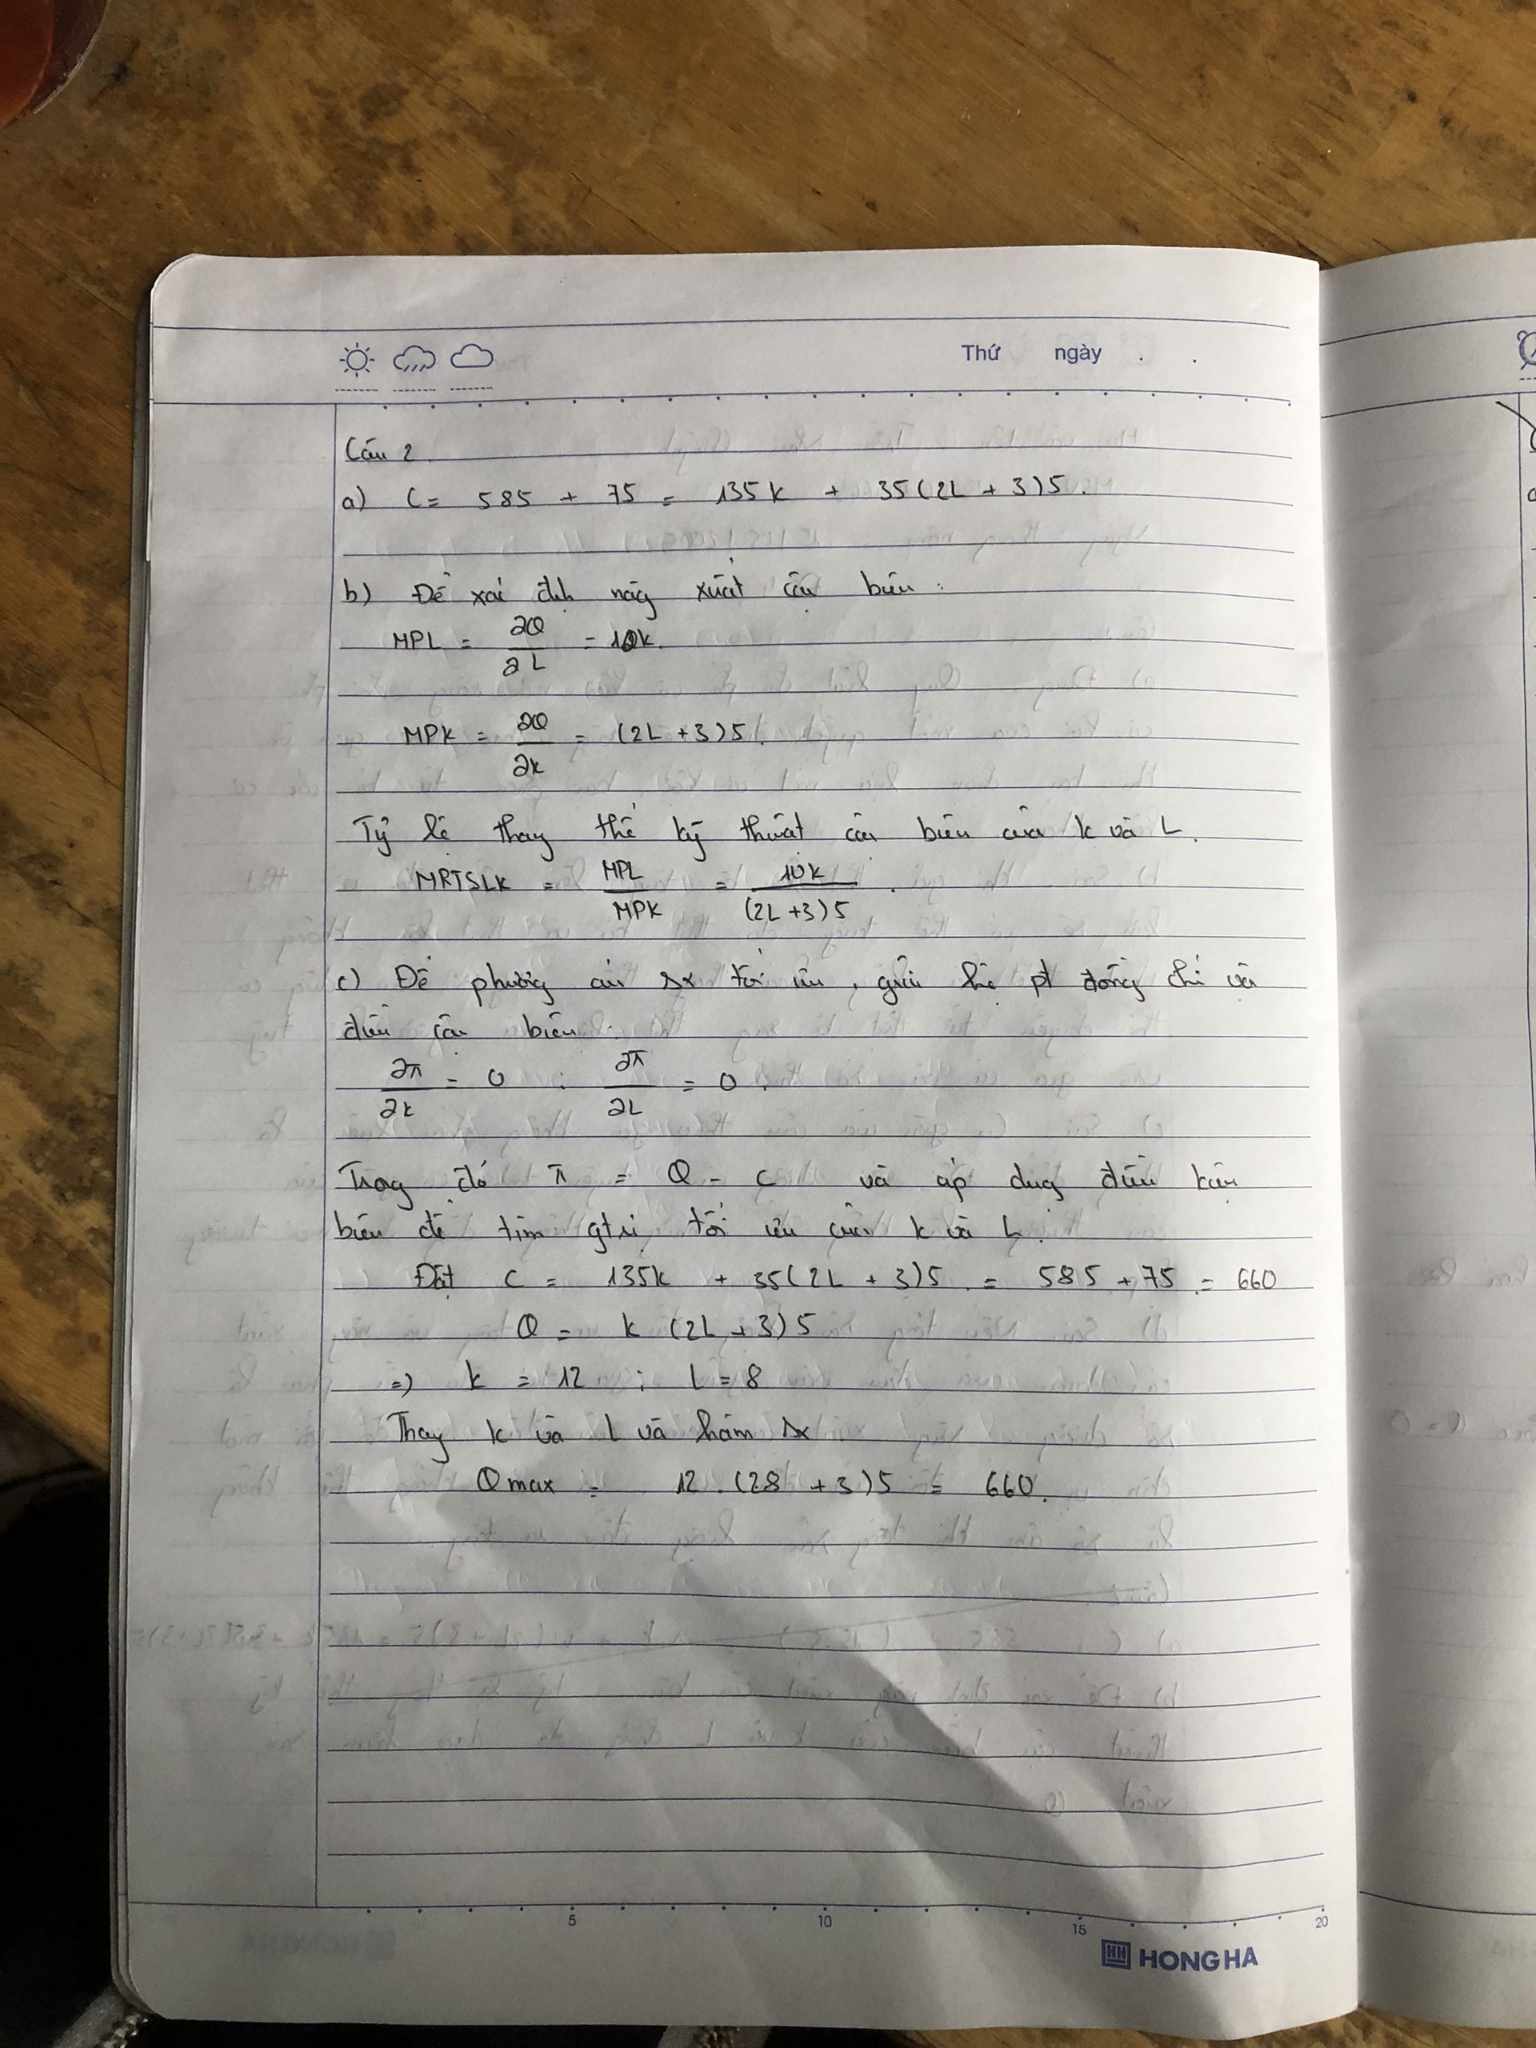 Thứ ngày . .
Câu 2.
a) C = 585 + 75 = 135k + 35(2L + 3)5.
b) Để xác định năng xuất cận biên:
MPL = ∂Q/∂L = 10k.
MPK = ∂Q/∂k = (2L + 3)5.
Tỷ lệ thay thế kỹ thuật cận biên của k và L.
MRTSLK = MPL/MPK = 10k/(2L+3)5.
c) Để phương án sx tối ưu, giải hệ pt đồng chi và
điều cận biên:
∂π/∂k = 0 ; ∂π/∂L = 0.
Trong đó π = Q - C và áp dụng điều kiện
biên để tìm gtrị tối ưu của k và L.
Đặt C = 135k + 35(2L + 3)5 = 585 + 75 = 660
Q = k (2L + 3)5
=> k = 12 ; L = 8
Thay k và L và hàm sx
Qmax = 12 . (28 + 3)5 = 660.
5 10 15 20
HH HONG HA